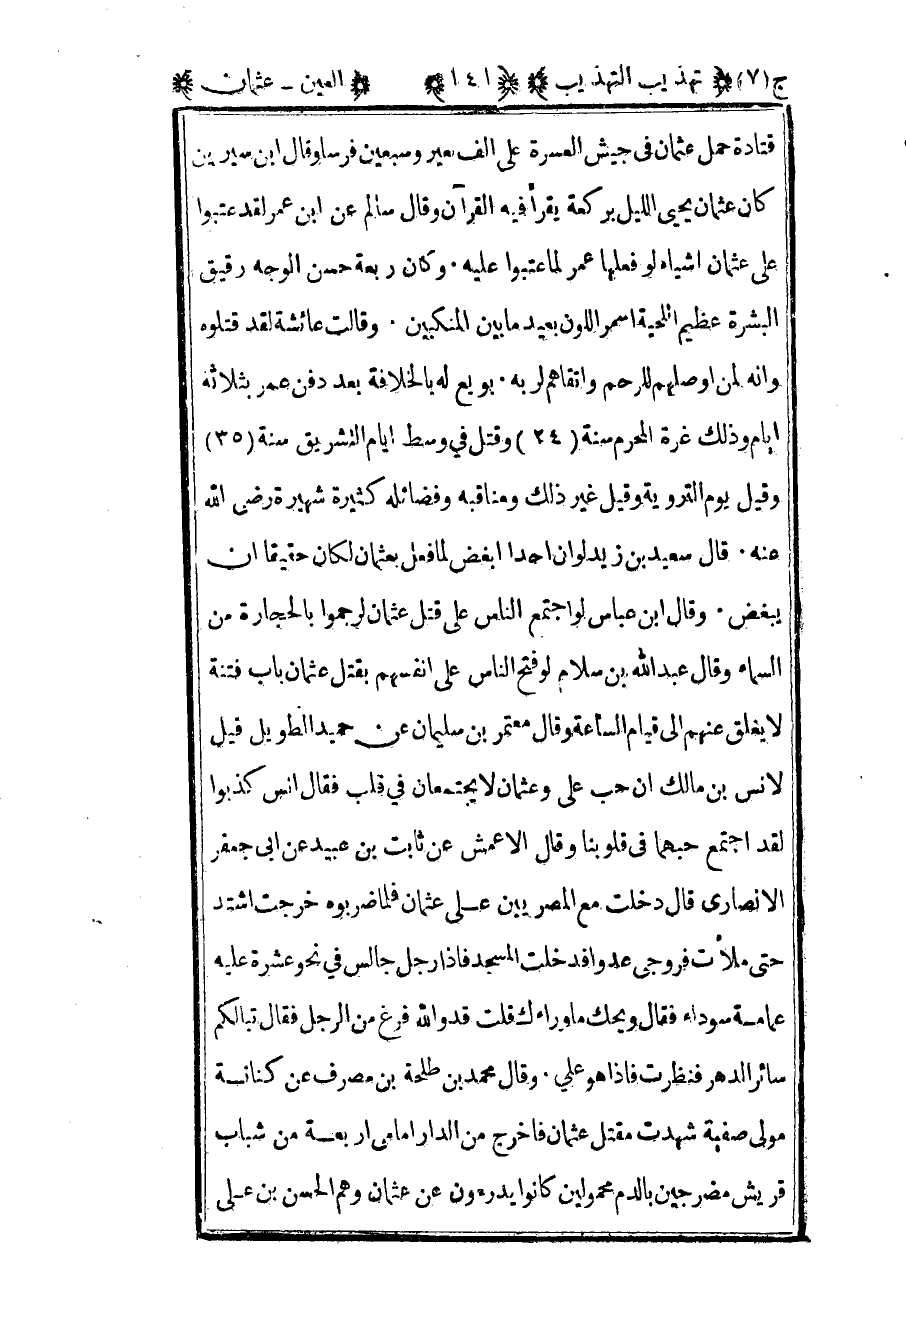 ج (٧) تهذيب التهذيب ١٤١ العين ـ عثمان
قتادة حمل عثمان فى جيش العسرة على الف بعير وسبعين فرسا وقال ابن سيرين
كان عثمان يحيى الليل بركعة يقرأ فيه القرآن وقال سالم عن ابن عمر لقد عتبوا
على عثمان اشياء لو فعلها عمر لما عتبوا عليه ٠ وكان ربعة حسن الوجه رقيق
البشرة عظيم اللحية اسمر اللون بعيد ما بين المنكبين ٠ وقالت عائشة لقد قتلوه
وانه لمن اوصلهم للرحم واتقاهم لربه ٠ بويع له بالخلافة بعد دفن عمر بثلاثة
ايام وذلك غرة المحرم سنة (٢٤) وقتل في وسط ايام التشريق سنة (٣٥)
وقيل يوم التروية وقيل غير ذلك ومناقبه وفضائله كثيرة شهيرة رضى الله
عنه ٠ قال سعيد بن زيد لو ان احدا ابغض لما فعل بعثمان لكان حقيقا ان
يبغض ٠ وقال ابن عباس لو اجتمع الناس على قتل عثمان لرجموا بالحجارة من
السماء وقال عبد الله بن سلام لو فتح الناس على انفسهم بقتل عثمان باب فتنة
لا يغلق عنهم الى قيام الساعة وقال معتمر بن سليمان عن حميد الطويل قيل
لانس بن مالك ان حب على وعثمان لا يجتمعان في قلب فقال انس كذبوا
لقد اجتمع حبهما فى قلوبنا وقال الاعمش عن ثابت بن عبيد عن ابى جعفر
الانصارى قال دخلت مع المصريين على عثمان فلما ضربوه خرجت اشتد
حتى ملأت فروجى عدوا فدخلت المسجد فاذا رجل جالس في نحو عشرة عليه
عمامة سوداء فقال ويحك ماوراءك قلت قد والله فرغ من الرجل فقال تبا لكم
سائر الدهر فنظرت فاذا هو علي ٠ وقال محمد بن طلحة بن مصرف عن كنانة
مولى صفية شهدت مقتل عثمان فاخرج من الدار امامى اربعة من شباب
قريش مضرجين بالدم محمولين كانوا يدرءون عن عثمان وهم الحسن بن على